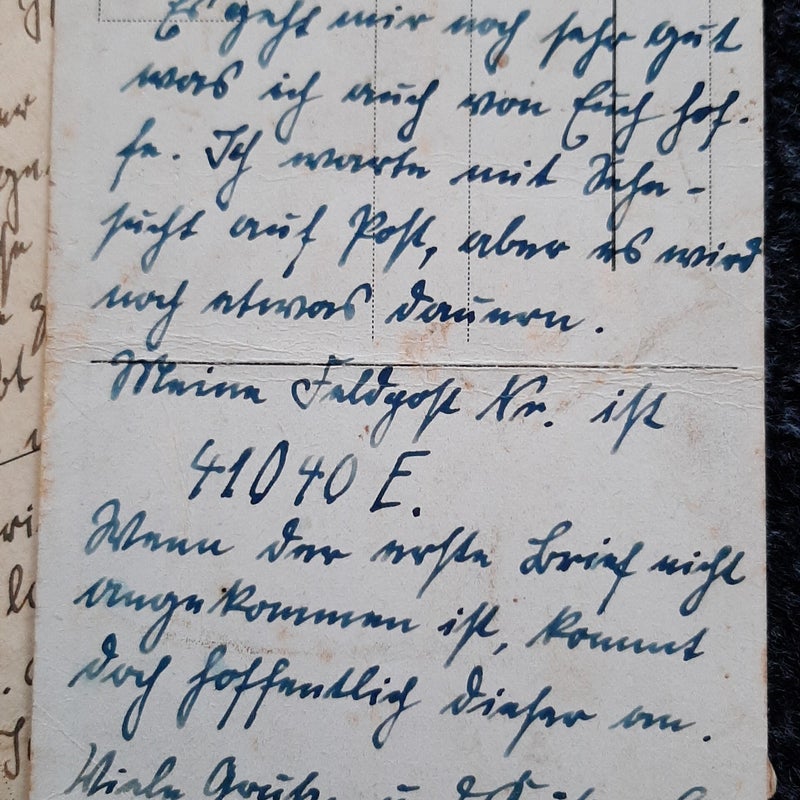 Es geht mir noch sehr gut
was ich auch von Euch hof-
fe. Ich warte mit Sehn-
sucht auf Post, aber es wird
noch etwas dauern.
Meine Feldpost Nr. ist
41040 E.
Wenn der erste Brief nicht
angekommen ist, kommt
doch hoffentlich dieser an.
Viele Grüße u.